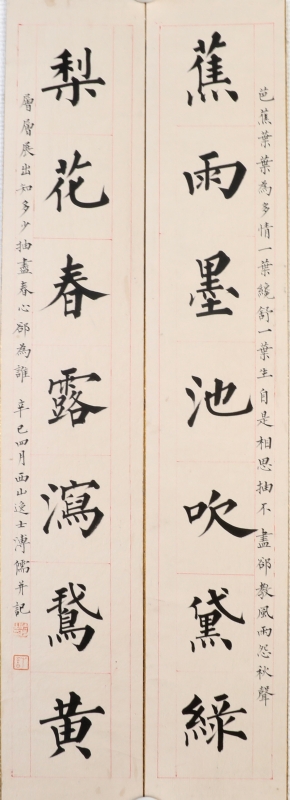 芭蕉葉葉為多情一葉纔舒一葉生自是相思抽不盡郤教風雨怨秋聲
蕉雨墨池吹黛綠
梨花春露瀉鵞黃
層層展出知多少抽盡春心郤為誰 辛巳四月西山逸士溥儒并記